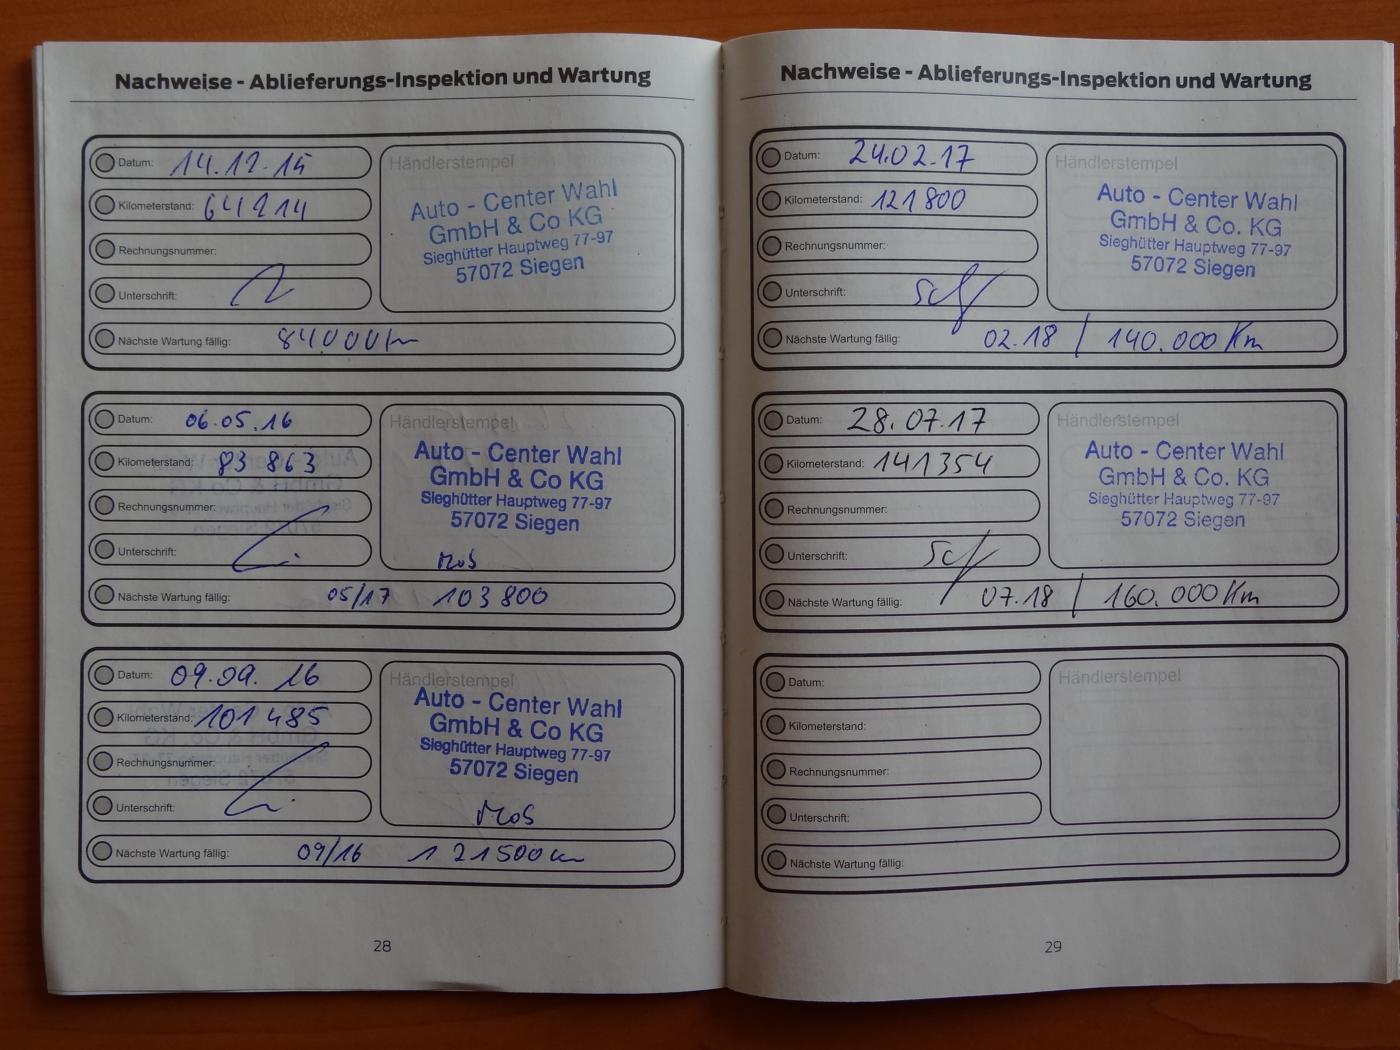 Nachweise - Ablieferungs-Inspektion und Wartung
Datum: 14.12.15
Kilometerstand: 64214
Rechnungsnummer:
Unterschrift:
Händlerstempel
Auto - Center Wahl
GmbH & Co KG
Sieghütter Hauptweg 77-97
57072 Siegen
Nächste Wartung fällig: 84000km
Datum: 06.05.16
Kilometerstand: 83 863
Rechnungsnummer:
Unterschrift:
Händlerstempel
Auto - Center Wahl
GmbH & Co KG
Sieghütter Hauptweg 77-97
57072 Siegen
MoS
Nächste Wartung fällig: 05/17 103 800
Datum: 09.09. 16
Kilometerstand: 101 485
Rechnungsnummer:
Unterschrift:
Händlerstempel
Auto - Center Wahl
GmbH & Co KG
Sieghütter Hauptweg 77-97
57072 Siegen
MoS
Nächste Wartung fällig: 09/16 121500 km
28
Nachweise - Ablieferungs-Inspektion und Wartung
Datum: 24.02.17
Kilometerstand: 121800
Rechnungsnummer:
Unterschrift:
Händlerstempel
Auto - Center Wahl
GmbH & Co. KG
Sieghütter Hauptweg 77-97
57072 Siegen
Nächste Wartung fällig: 02.18 / 140.000 Km
Datum: 28.07.17
Kilometerstand: 141354
Rechnungsnummer:
Unterschrift:
Händlerstempel
Auto - Center Wahl
GmbH & Co. KG
Sieghütter Hauptweg 77-97
57072 Siegen
Nächste Wartung fällig: 07.18 / 160.000 Km
Datum:
Kilometerstand:
Rechnungsnummer:
Unterschrift:
Händlerstempel
Nächste Wartung fällig:
29